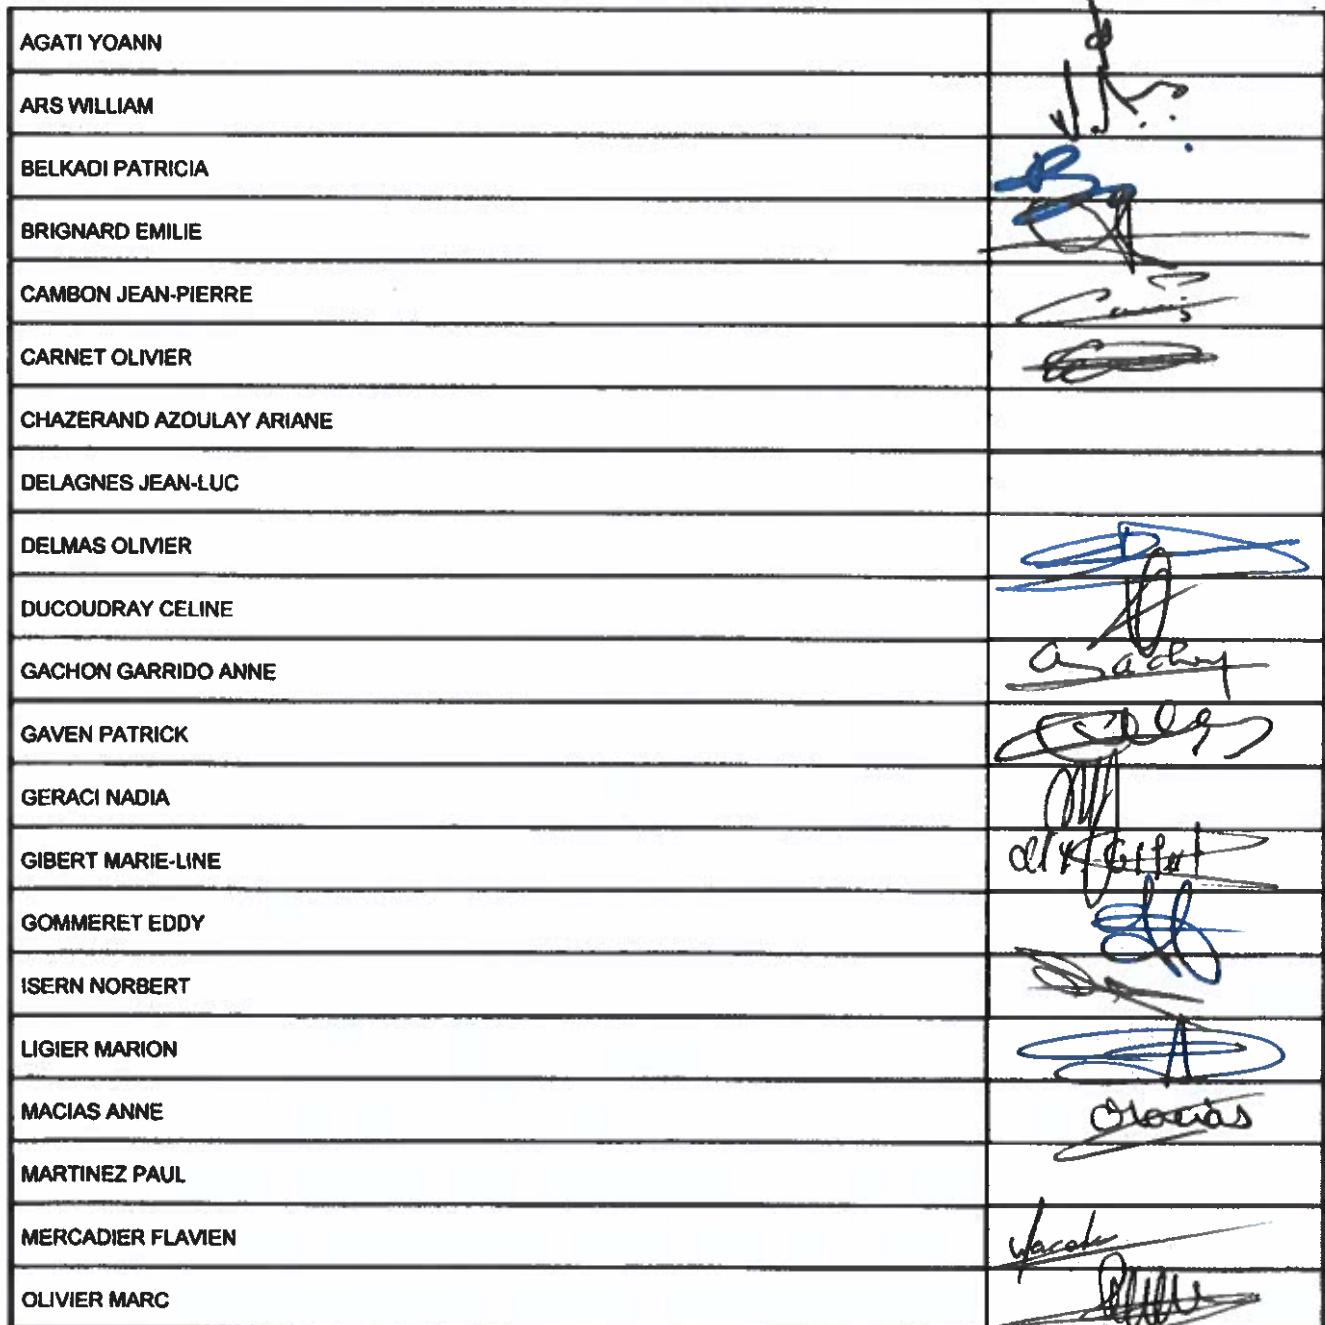 AGATI YOANN
ARS WILLIAM
BELKADI PATRICIA
BRIGNARD EMILIE
CAMBON JEAN-PIERRE
CARNET OLIVIER
CHAZERAND AZOULAY ARIANE
DELAGNES JEAN-LUC
DELMAS OLIVIER
DUCOUDRAY CELINE
GACHON GARRIDO ANNE
GAVEN PATRICK
GERACI NADIA
GIBERT MARIE-LINE
GOMMERET EDDY
ISERN NORBERT
LIGIER MARION
MACIAS ANNE
MARTINEZ PAUL
MERCADIER FLAVIEN
OLIVIER MARC